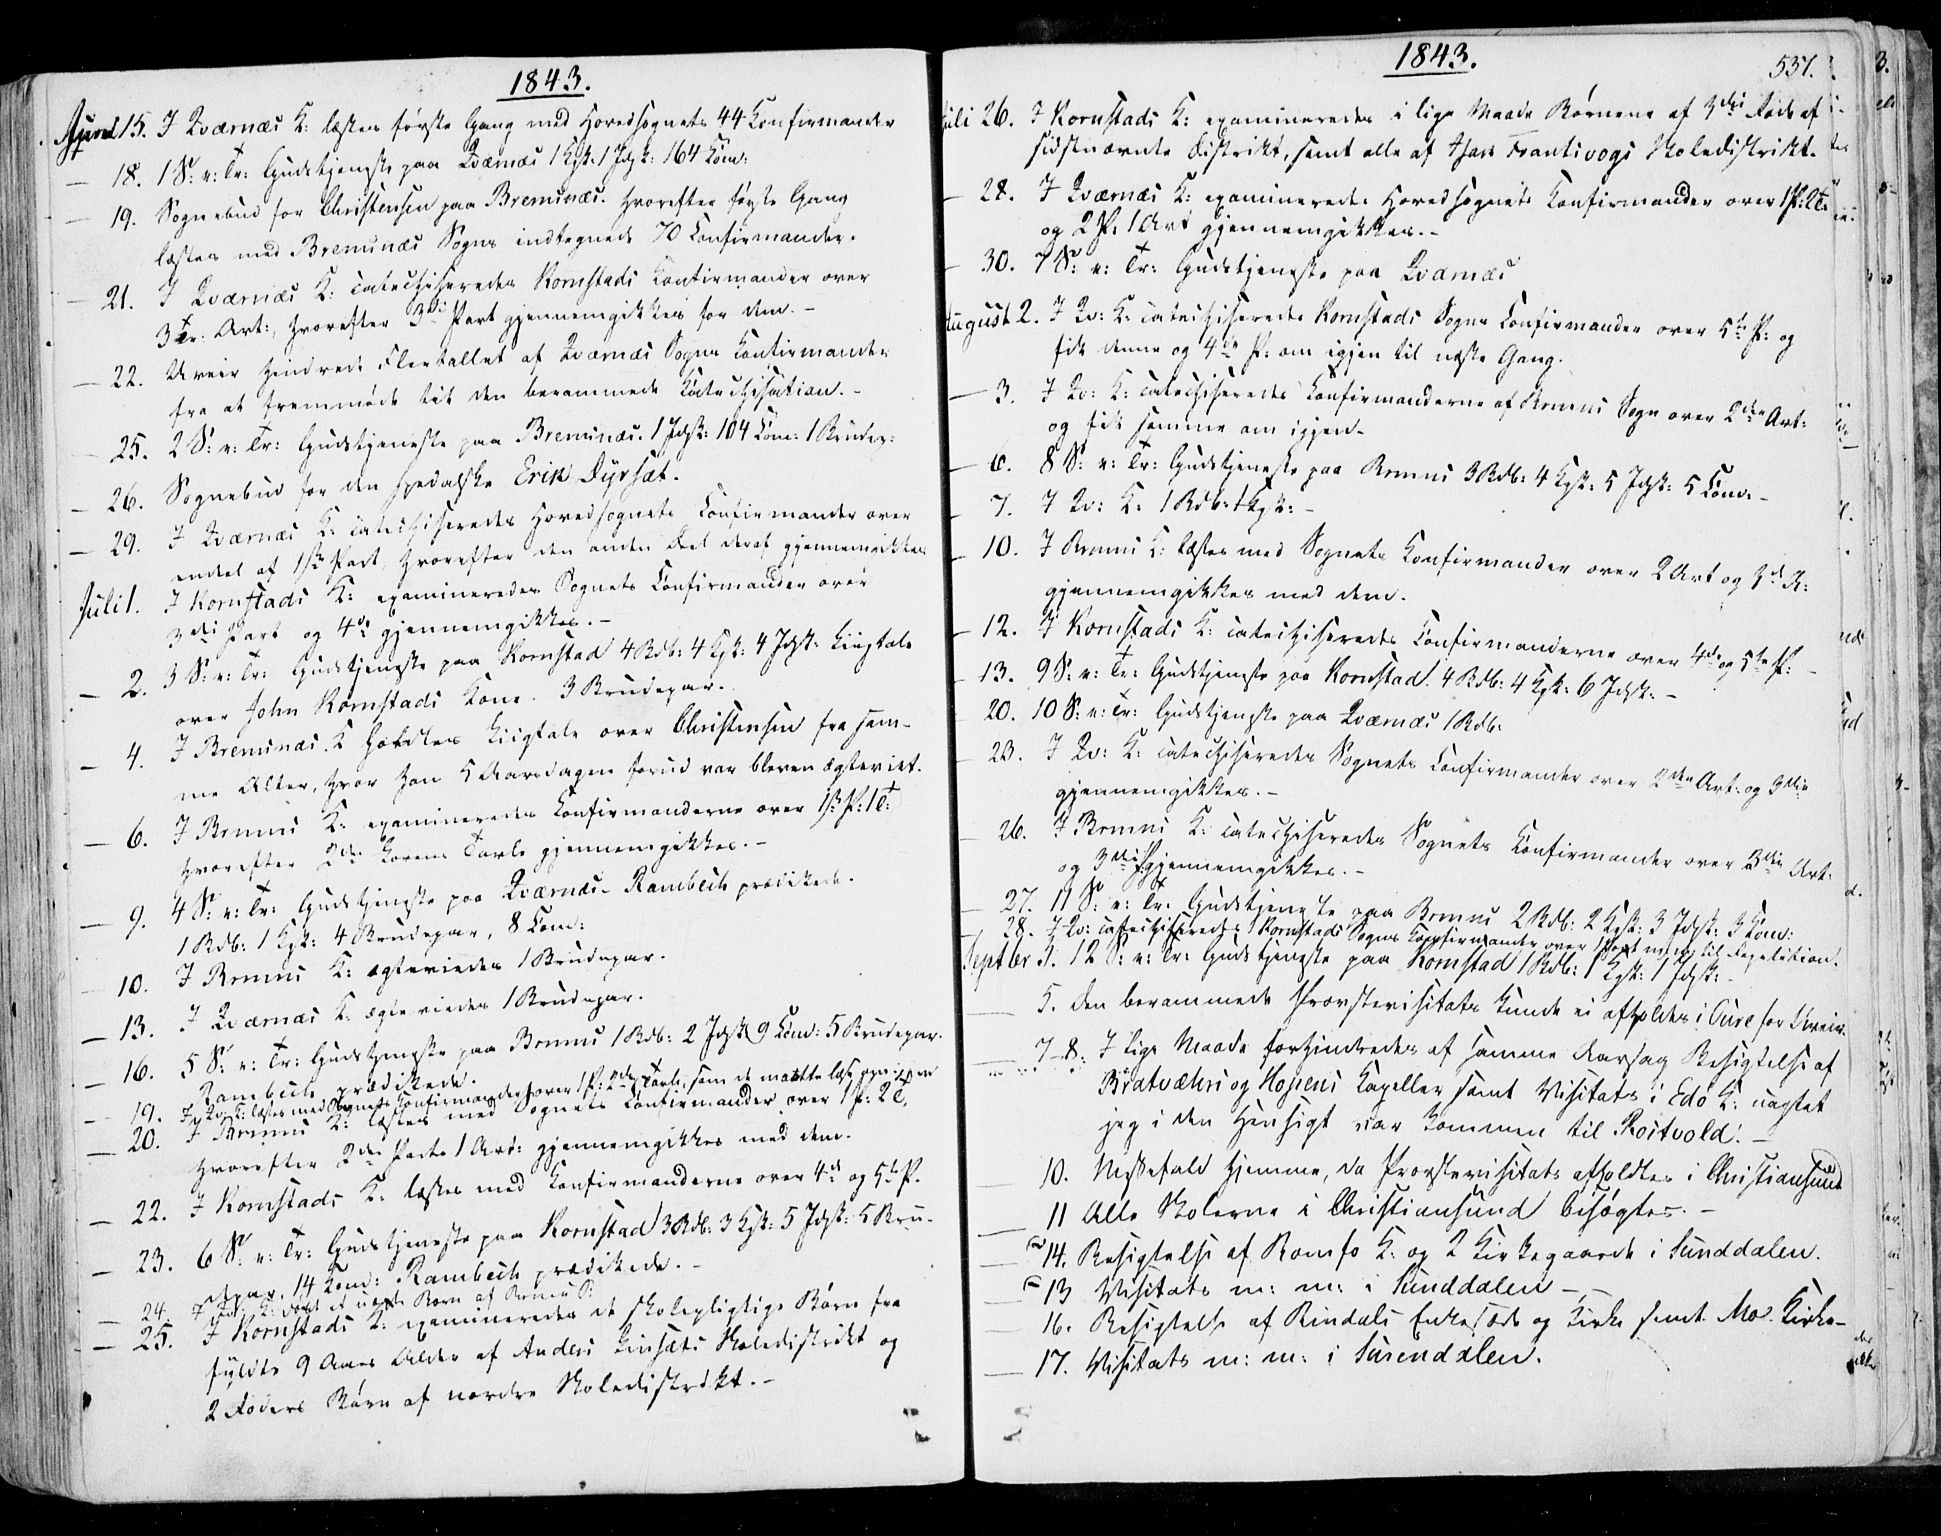 1843.
Juni 15. I Qværnæs K: læstes første Gang med Hovedsognets 44 Confirmander
— 18. 1 S: e: Tr: Gudstjeneste paa Qværnæs 1 Kgk: 1 Jdsk: 164 Com:
— 19. Sognebud for Christensen paa Bremsnæs. Hvorefter første Gang
læstes med Bremsnæs Sogns indtegnede 70 Confirmander.
— 21. I Qværnæs K: catechiseredes Kornstads Confirmander over
3 Tr. Art:, hvorefter 3die Part gjennemgikkes for dem. —
— 22. Uveir hindrede Fleertallet af Qværnæs Sogns Confirmander
fra at fremmøde til den berammede Catechisation. —
— 25. 2 S: e: Tr: Gudstjeneste paa Bremsnæs. 1 Jdsk: 104 Com: 1 Brudep:
— 26. Sognebud for den spedalske Erik Dyrsæt.
— 29. I Qværnæs K: catechiseredes Hovedsognets Confirmander over
endel af 1ste Part, hvorefter den anden Deel deraf gjennemgikkes
Juli 1. I Kornstads K: examineredes Sognets Confirmander over
3die Part og 4de gjennemgikkes. —
— 2. 3 S: e: Tr: Gudstjeneste paa Kornstad 4 Bdb: 4 Kgk: 4 Jdsk: Liigtale
over John Kornstads Kone. 3 Brudepar.
— 4. I Bremsnæs K holdtes Liigtale over Christensen fra sam-
me Alter, hvor han 5 Aarsdagen forud var bleven ægteviet.
— 6. I Bremsn: K: examineredes Confirmanderne over 1ste P: 1 T:
hvorefter 2den Lovens Tavle gjennemgikkes. —
— 9. 4 S: e: Tr: Gudstjeneste paa Qværnæs. Rambech prædikede.
1 Bdb: 1 Kgk: 4 Brudepar, 8 Com:
— 10. I Bremsn: K: ægteviedes 1 Brudepar.
— 13. I Qværnæs K: ægteviedes 1 Brudepar.
— 16. 5 S: e: Tr: Gudstjeneste paa Bremsn: 1 Bdb: 2 Jdsk 9 Com: 5 Brudepar.
Rambech prædikede.
— 19. I Qv: K: læstes med Sognets Confirmander over 1 P: 2den Tavle, som de maatte læse om igjen
— 20. I Bremsn: K: læstes med Sognets Confirmander over 1 P: 2 T,
hvorefter 2den Parts 1 Art: gjennemgikkes med dem.
— 22. I Kornstads K: læstes med Confirmanderne over 4de og 5te P.
— 23. 6 S: e: Tr: Gudstjeneste paa Kornstad 3 Bdb: 3 Kgk: 5 Jdsk: 5 Bru-
depar. 14 Com: Rambech prædikede. —
— 24. I Qv: K: døbt et uægte Barn af Bremsn: S:
— 25. I Kornstads K: examineredes de skolepligtige Børn fra
fyldte 9 Aars Alder af Anders Linsæts Skoledistrikt og
2 Roders Børn af nordre Skoledistrikt. —
1843.
537.
Juli 26. I Kornstads K: examineredes i lige Maade Børnene af 3die Rode af
sidstnævnte Distrikt, samt alle af Isak Frantivogs Skoledistrikt.
— 28. I Qværnæs K: examinerede Hovedsognets Confirmander over 1 P: 2 T:
og 2 P: 1 Art gjennemgikkes. —
— 30. 7 S: e: Tr: Gudstjeneste paa Qværnæs
August 2. I Qv: K: catechiserede Kornstads Sogns Confirmander over 5te P: og
fik denne og 4de P: om igjen til næste Gang.
— 3. I Qv: K: catechiseredes Confirmanderne af Bremsn: Sogn over 2den Art:
og fik samme om igjen.
— 6. 8 S: e: Tr: Gudstjeneste paa Bremsn: 3 Bdb: 4 Kgk: 5 Jdsk: 5 Com: —
— 7. I Qv: K: 1 Bdb: 1 Kgk: —
— 10. I Bremsn: K: læstes med Sognets Confirmander over 2 Art og 3d A:
gjennemgikkes med dem.
— 12. I Kornstads K: catechiseredes Confirmanderne over 4de og 5te P: —
— 13. 9 S: e: Tr: Gudstjeneste paa Kornstad. 4 Bdb: 4 Kgk: 6 Jdsk: —
20. 10 S: e: Tr: Gudstjeneste paa Qværnæs 1 Bdb:
— 23. I Qv: K: catechiseredes Sognets Confirmander over 2den Art: og 3die
gjennemgikkes. —
— 26. I Bremsn: K: catechiseredes Sognets Confirmander over 3die Art:
og 3die P gjennemgikkes. —
— 27. 11 S: e: Tr: Gudstjeneste paa Bremsn: 2 Bdb: 2 Kgk: 3 Jdsk: 3 Com:
28. I Qv: catechiseredes Kornstads Sogns Confirmander over 1 Part til Repetition.
Septbr 3. 12 S: e: Tr: Gudstjeneste paa Kornstad 1 Bdb: 1 Kgk: 1 Jdsk: —
— 5. Den berammede Provstevisitats kunde ei afholdes i Aure for Uveir.
— 7-8. I lige Maade forhindredes af samme Aarsag Besigtelse af
Bratværs og Hopens Kapeller samt Visitats i Edø K: uagtet
jeg i den Hensigt var kommen til Rostvold. —
— 10. Messefald hjemme, da Provstevisitats afholdtes i Christiansund
— 11 Alle Skolerne i Christiansund besøgtes. —
— 14. Besigtelse af Romfo K: og 2 Kirkegaarde i Sunddalen.
— 13 Visitats m: m: i Sunddalen —
— 16. Besigtelse af Rindals Enkesæde og Kirke samt Mo Kirke —
— 17. Visitats m: m: i Surendalen.